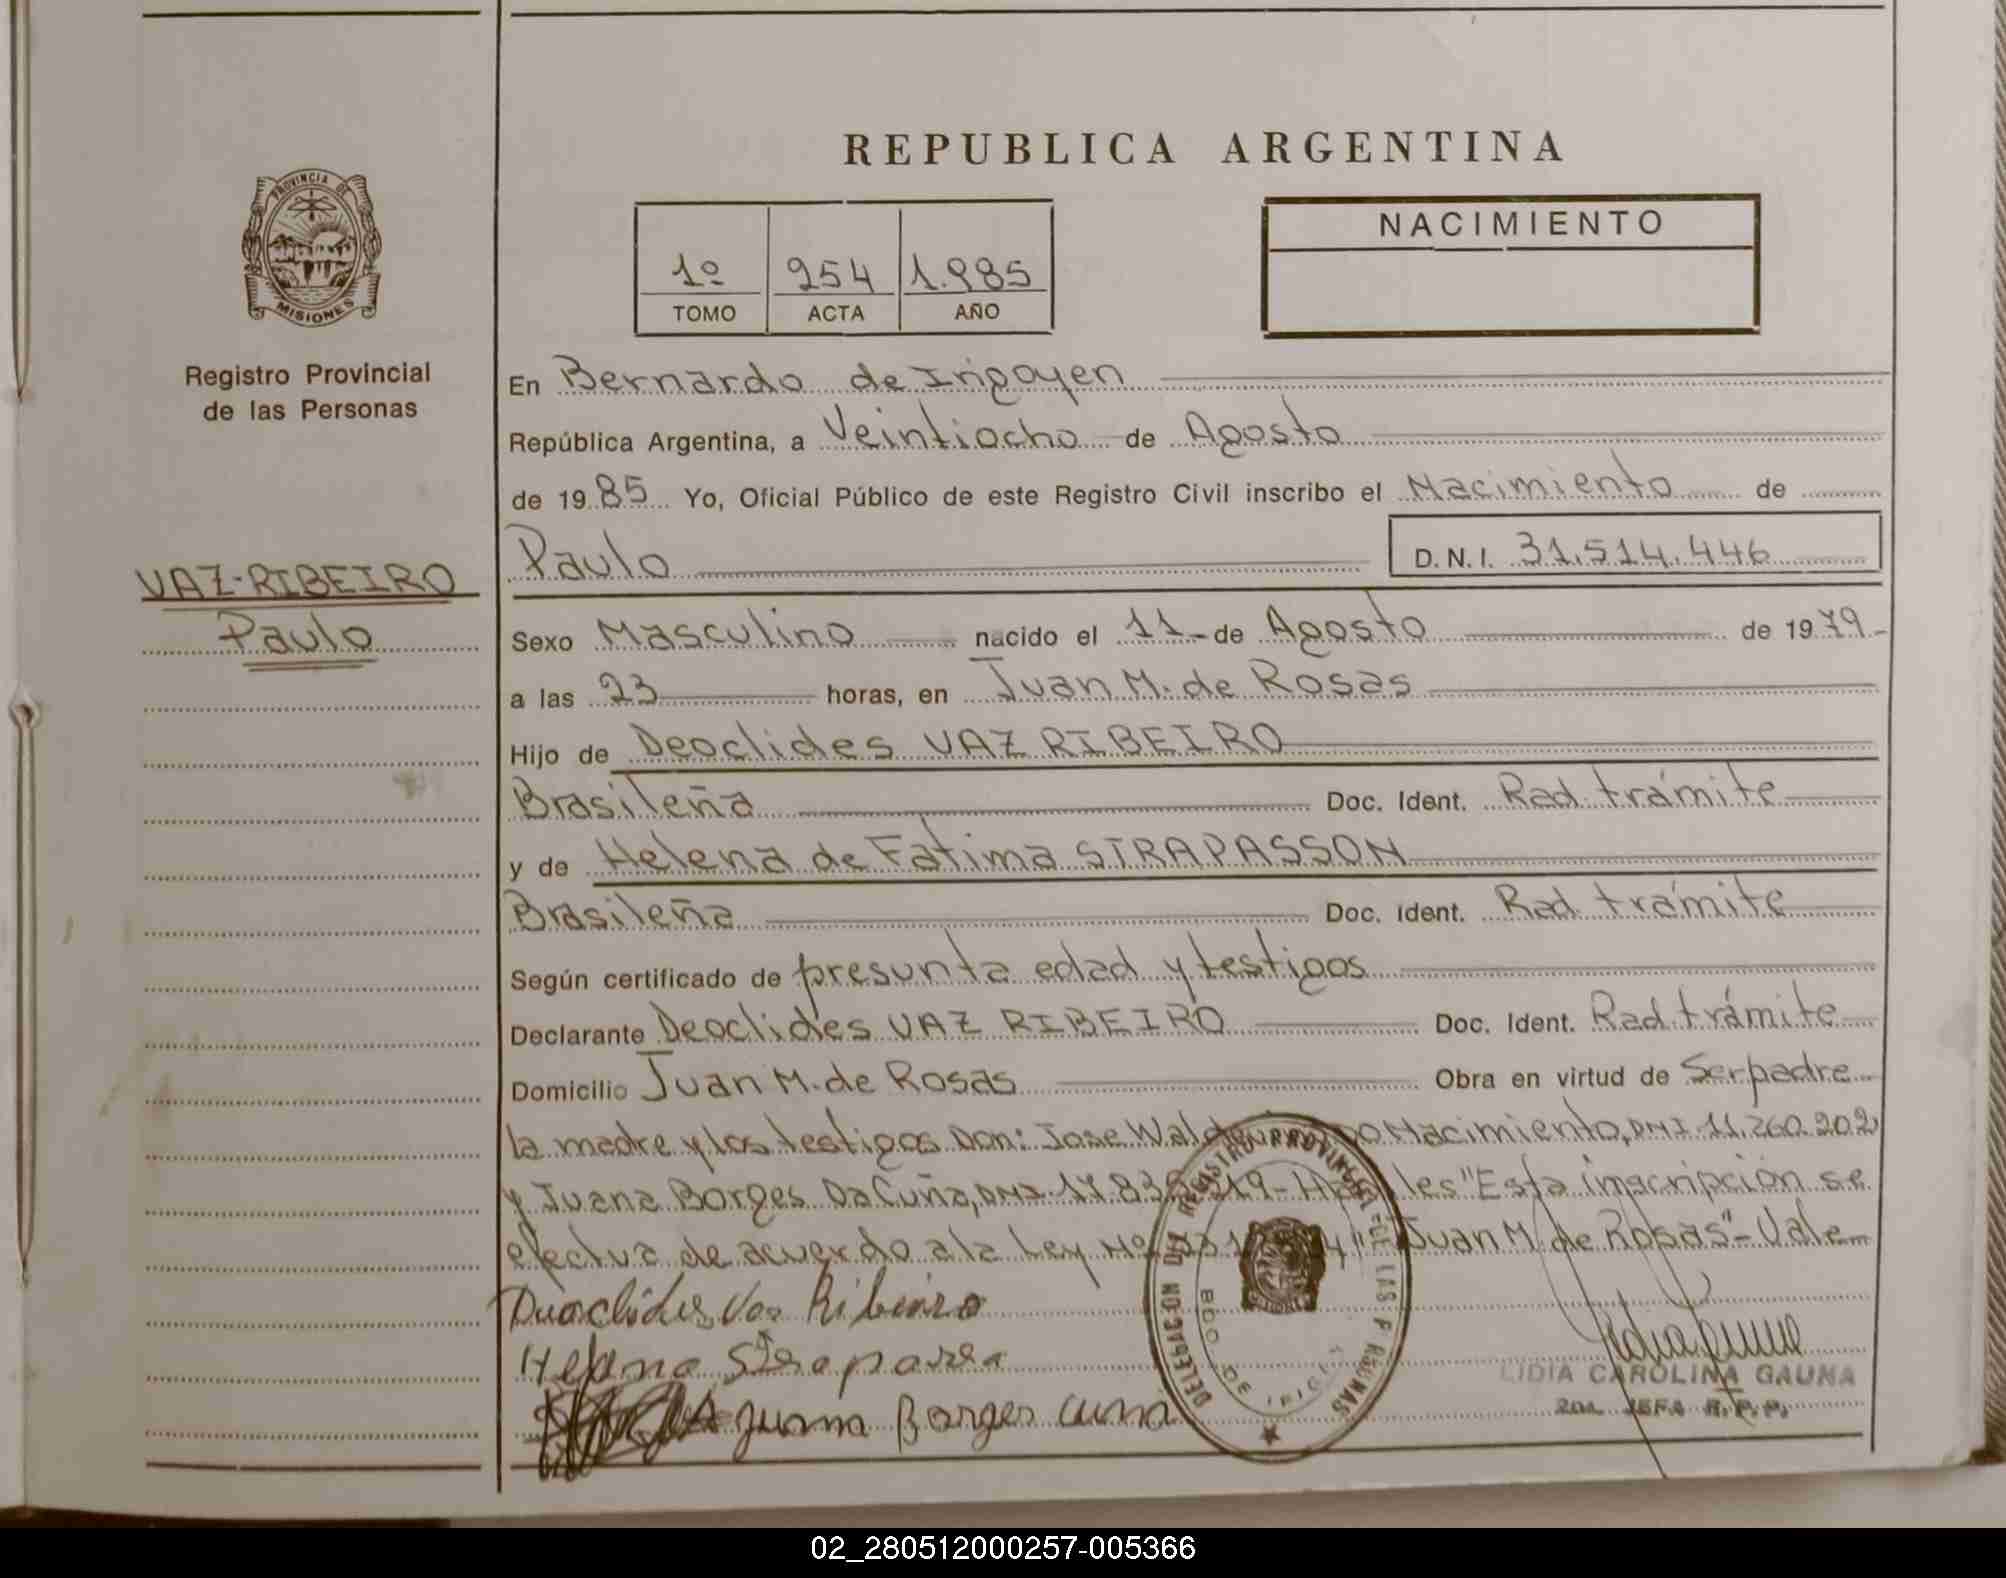 REPUBLICA ARGENTINA
PROVINCIA DE
MISIONES
Registro Provincial
de las Personas
VAZ-RIBEIRO
Paulo
1º 254 1.985
TOMO ACTA AÑO
NACIMIENTO
En Bernardo de Irigoyen
República Argentina, a Veintiocho de Agosto
de 1985 Yo, Oficial Público de este Registro Civil inscribo el Nacimiento de
Paulo D.N.I. 31.514.446
Sexo Masculino nacido el 11 de Agosto de 1979
a las 23 horas, en Juan M. de Rosas
Hijo de Deoclides VAZ RIBEIRO
Brasileña Doc. Ident. Rad. trámite
y de Helena de Fatima STRAPASSON
Brasileña Doc. Ident. Rad. trámite
Según certificado de presunta edad y testigos
Declarante Deoclides VAZ RIBEIRO Doc. Ident. Rad. trámite
Domicilio Juan M. de Rosas Obra en virtud de Ser padre
la madre y los testigos Don: Jose Nacimiento, DNI 11.260.202
y Juana Borges Da Cuña, DNI "Esta inscripción se
efectua de acuerdo a la Ley Nº "Juan M. de Rosas"- Vale
Duoclides Vaz Ribeiro
Helena
Juana Borges Cuna
DELEGACION DEL REGISTRO PROVINCIAL DE LAS PERSONAS
BDO DE IRIGOYEN
LIDIA CAROLINA GAUNA
2da. JEFA R.P.P.
02_280512000257-005366